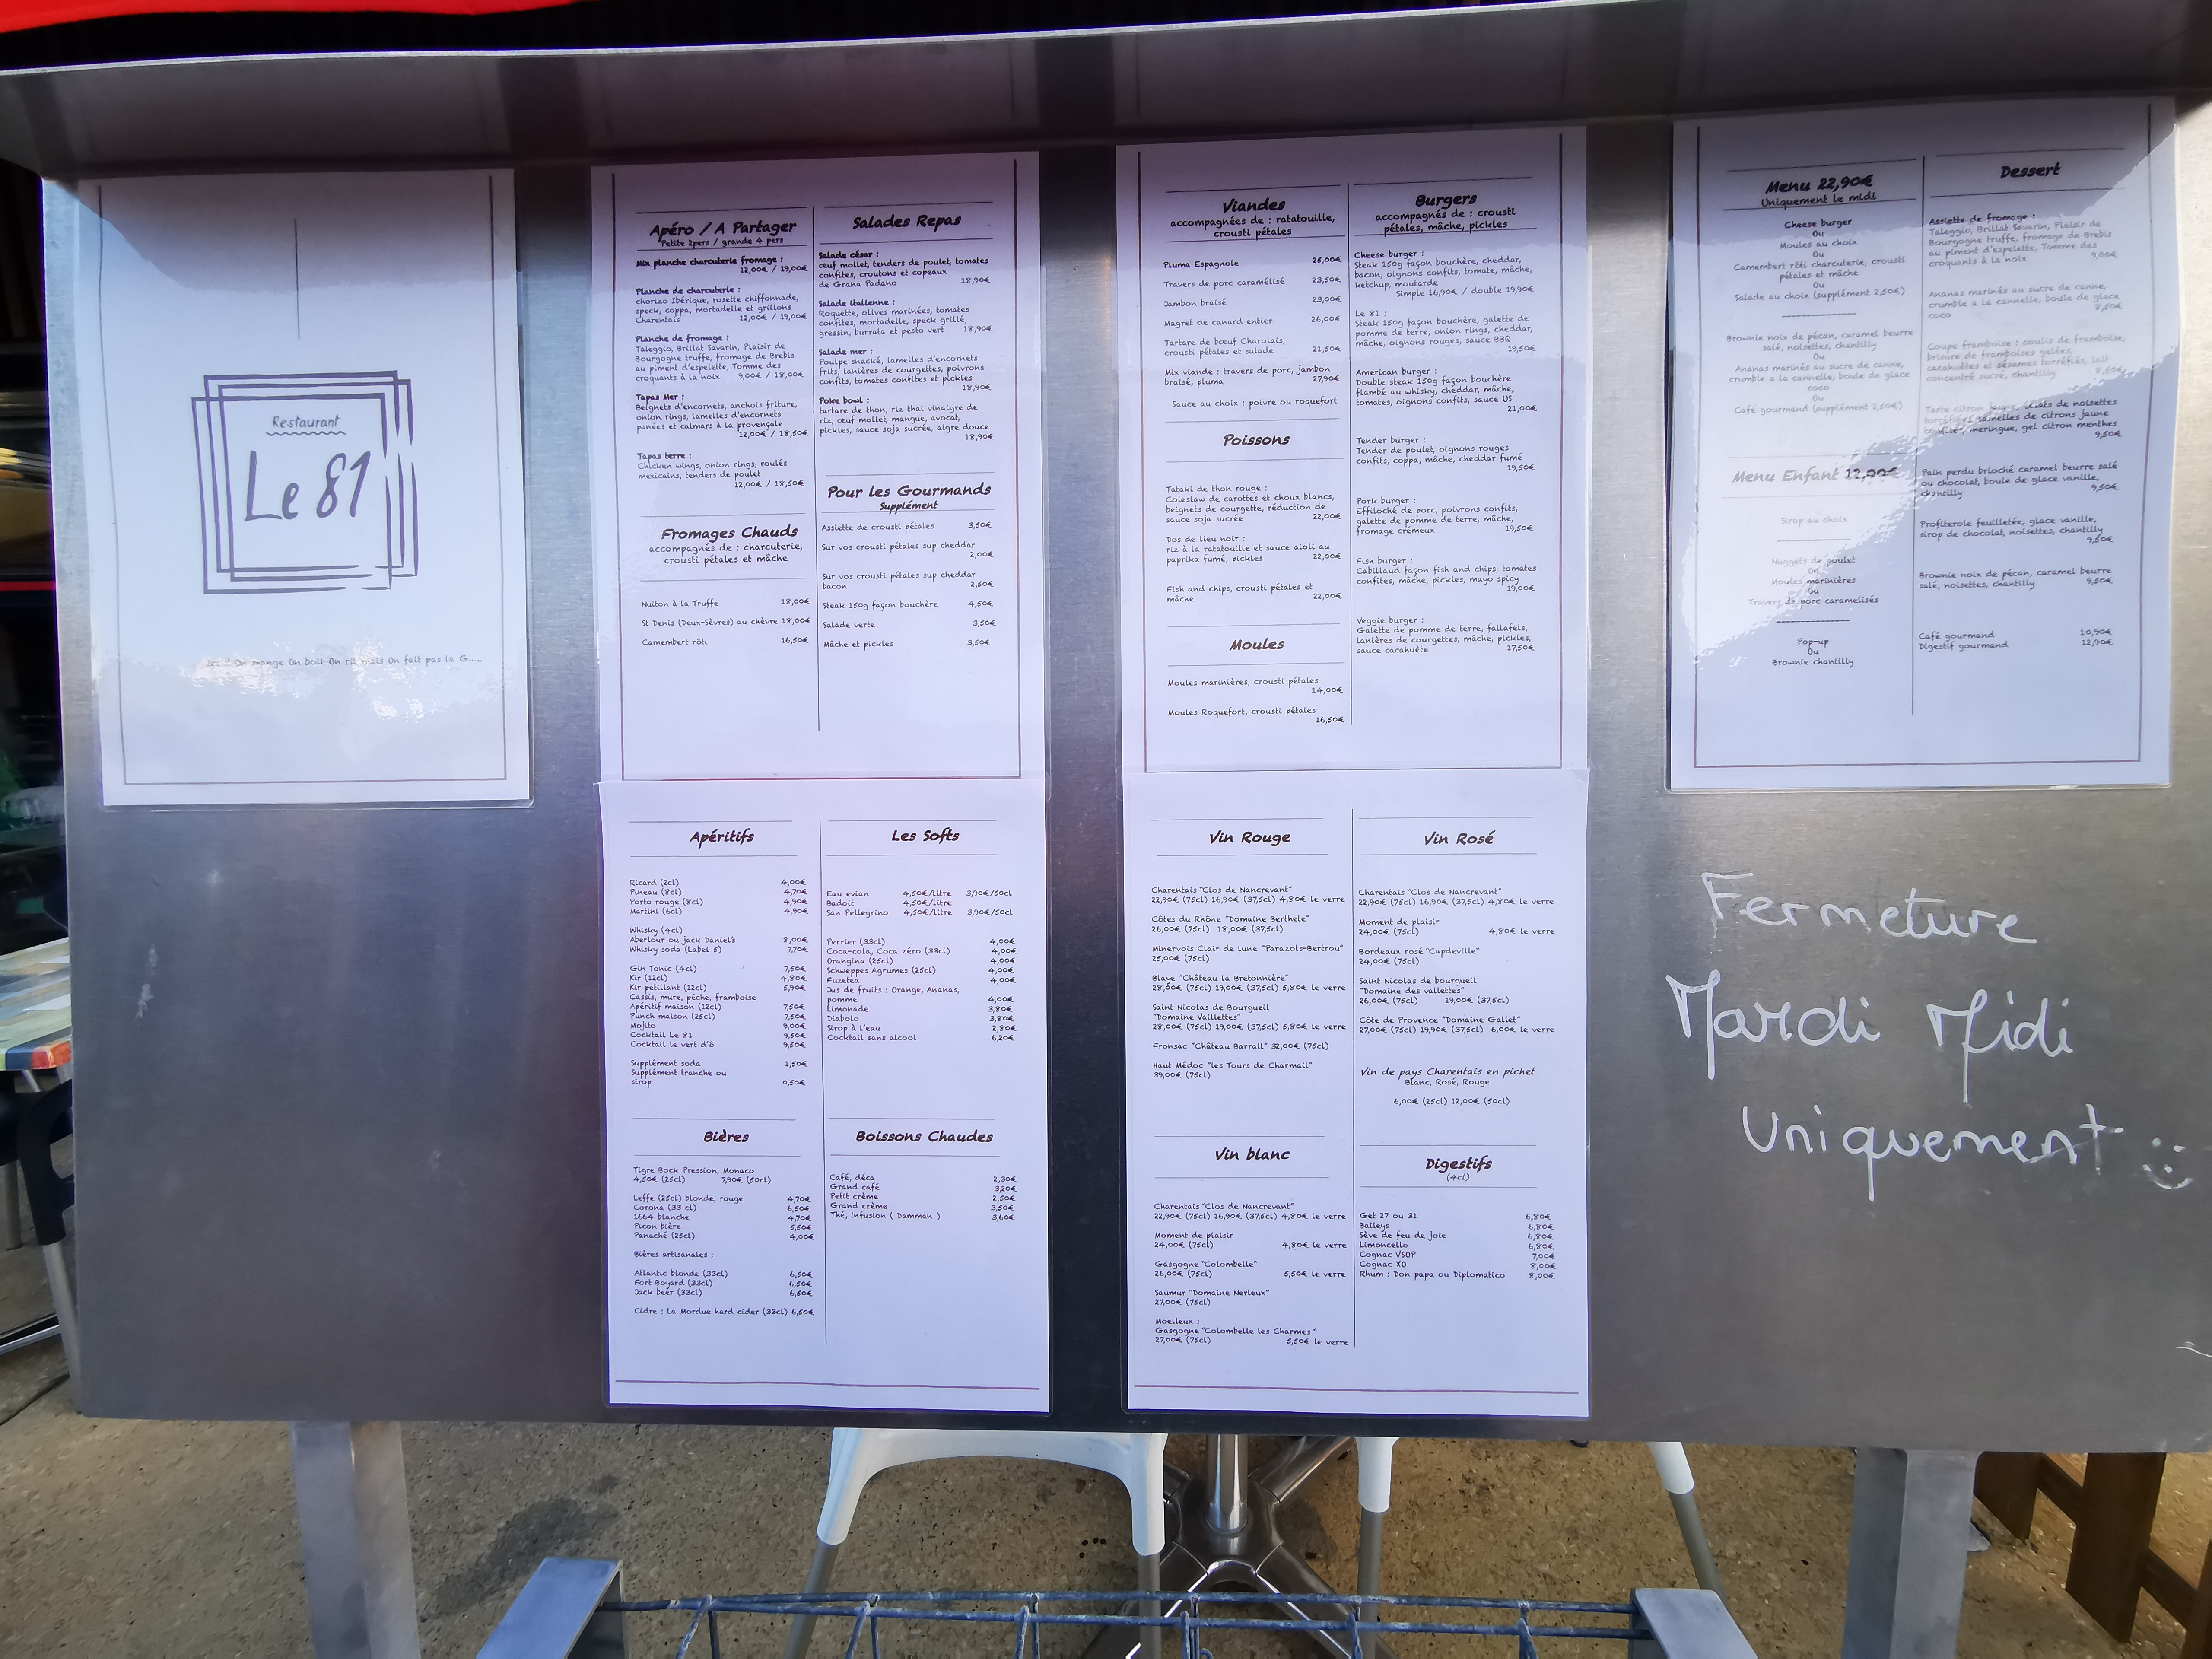 Restaurant
Le 81
On mange On boit On rit mais On fait pas la G.....
Apéro / A Partager
Petite 2pers / grande 4 pers
Mix planche charcuterie fromage :
12,00€ / 19,00€
Planche de charcuterie :
chorizo Ibérique, rosette chiffonnade,
speck, coppa, mortadelle et grillons
Charentais 12,00€ / 19,00€
Planche de fromage :
Taleggio, Brillat Savarin, Plaisir de
Bourgogne truffe, fromage de Brebis
au piment d'espelette, Tomme des
croquants à la noix 9,00€ / 18,00€
Tapas Mer :
Beignets d'encornets, anchois friture,
onion rings, lamelles d'encornets
panées et calmars à la provençale
12,00€ / 18,50€
Tapas terre :
Chicken wings, onion rings, roulés
mexicains, tenders de poulet
12,00€ / 18,50€
Fromages Chauds
accompagnés de : charcuterie,
crousti pétales et mâche
Nuiton à la Truffe 18,00€
St Denis (Deux-Sèvres) au chèvre 18,00€
Camembert rôti 16,50€
Salades Repas
Salade césar :
œuf mollet, tenders de poulet, tomates
confites, croutons et copeaux
de Grana Padano 18,90€
Salade italienne :
Roquette, olives marinées, tomates
confites, mortadelle, speck grillé,
gressin, burrata et pesto vert 18,90€
Salade mer :
Poulpe snacké, lamelles d'encornets
frits, lanières de courgettes, poivrons
confits, tomates confites et pickles
18,90€
Poke bowl :
tartare de thon, riz thaï vinaigre de
riz, œuf mollet, mangue, avocat,
pickles, sauce soja sucrée, aigre douce
18,90€
Pour les Gourmands
Supplément
Assiette de crousti pétales 3,50€
Sur vos crousti pétales sup cheddar
2,00€
Sur vos crousti pétales sup cheddar
bacon 2,50€
Steak 150g façon bouchère 4,50€
Salade verte 3,50€
Mâche et pickles 3,50€
Viandes
accompagnées de : ratatouille,
crousti pétales
Pluma Espagnole 25,00€
Travers de porc caramélisé 23,50€
Jambon braisé 23,00€
Magret de canard entier 26,00€
Tartare de bœuf Charolais,
crousti pétales et salade 21,50€
Mix viande : travers de porc, jambon
braisé, pluma 27,90€
Sauce au choix : poivre ou roquefort
Poissons
Tataki de thon rouge :
Coleslaw de carottes et choux blancs,
beignets de courgette, réduction de
sauce soja sucrée 22,00€
Dos de lieu noir :
riz à la ratatouille et sauce aioli au
paprika fumé, pickles 22,00€
Fish and chips, crousti pétales et
mâche 22,00€
Moules
Moules marinières, crousti pétales
14,00€
Moules Roquefort, crousti pétales
16,50€
Burgers
accompagnés de : crousti
pétales, mâche, pickles
Cheese burger :
Steak 150g façon bouchère, cheddar,
bacon, oignons confits, tomate, mâche,
ketchup, moutarde
Simple 16,90€ / double 19,90€
Le 81 :
Steak 150g façon bouchère, galette de
pomme de terre, onion rings, cheddar,
mâche, oignons rouges, sauce BBQ
19,50€
American burger :
Double steak 150g façon bouchère
flambé au whisky, cheddar, mâche,
tomates, oignons confits, sauce US
21,00€
Tender burger :
Tender de poulet, oignons rouges
confits, coppa, mâche, cheddar fumé
19,50€
Pork burger :
Effiloché de porc, poivrons confits,
galette de pomme de terre, mâche,
fromage crémeux 19,50€
Fish burger :
Cabillaud façon fish and chips, tomates
confites, mâche, pickles, mayo spicy
19,00€
Veggie burger :
Galette de pomme de terre, fallafels,
lanières de courgettes, mâche, pickles,
sauce cacahuète 17,50€
Menu 22,90€
Uniquement le midi
Cheese burger
Ou
Moules au choix
Ou
Camembert rôti charcuterie, crousti
pétales et mâche
Ou
Salade au choix (supplément 2,50€)
Brownie noix de pécan, caramel beurre
salé, noisettes, chantilly
Ou
Ananas marinés au sucre de canne,
crumble a la cannelle, boule de glace
coco
Ou
Café gourmand (supplément 2,50€)
Menu Enfant 12,90€
Sirop au choix
Nuggets de poulet
Ou
Moules marinières
Ou
Travers de porc caramelisés
Pop-up
Ou
Brownie chantilly
Dessert
Assiette de fromage :
Taleggio, Brillat Savarin, Plaisir de
Bourgogne truffe, fromage de Brebis
au piment d'espelette, Tomme des
croquants à la noix 9,00€
Ananas marinés au sucre de canne,
crumble a la cannelle, boule de glace
coco 8,50€
Coupe framboise : coulis de framboise,
brisure de framboises gelées,
cacahuètes et sésames torréfiés, lait
concentré sucré, chantilly 8,50€
Tarte citron jaune, éclats de noisettes
torréfiées lamelles de citrons jaune
confites, meringue, gel citron menthes
9,50€
Pain perdu brioché caramel beurre salé
ou chocolat, boule de glace vanille,
chantilly 9,50€
Profiterole feuilletée, glace vanille,
sirop de chocolat, noisettes, chantilly
9,50€
Brownie noix de pécan, caramel beurre
salé, noisettes, chantilly 9,50€
Café gourmand 10,90€
Digestif gourmand 12,90€
Apéritifs
Ricard (2cl) 4,00€
Pineau (8cl) 4,70€
Porto rouge (8cl) 4,90€
Martini (6cl) 4,90€
Whisky (4cl)
Aberlour ou jack Daniel's 8,00€
Whisky soda (Label 5) 7,70€
Gin Tonic (4cl) 7,50€
Kir (12cl) 4,80€
Kir petillant (12cl) 5,90€
Cassis, mure, pêche, framboise
Apéritif maison (12cl) 7,50€
Punch maison (25cl) 7,50€
Mojito 9,00€
Cocktail Le 81 9,50€
Cocktail le vert d'ô 9,50€
Supplément soda 1,50€
Supplément tranche ou
sirop 0,50€
Bières
Tigre Bock Pression, Monaco
4,50€ (25cl) 7,90€ (50cl)
Leffe (25cl) blonde, rouge 4,70€
Corona (33 cl) 6,50€
1664 blanche 4,70€
Picon bière 5,50€
Panaché (25cl) 4,00€
Bières artisanales :
Atlantic blonde (33cl) 6,50€
Fort Boyard (33cl) 6,50€
Jack beer (33cl) 6,50€
Cidre : La Mordue hard cider (33cl) 6,50€
Les Softs
Eau evian 4,50€/litre 3,90€/50cl
Badoit 4,50€/litre
San Pellegrino 4,50€/litre 3,90€/50cl
Perrier (33cl) 4,00€
Coca-cola, Coca zéro (33cl) 4,00€
Orangina (25cl) 4,00€
Schweppes Agrumes (25cl) 4,00€
Fuzetea 4,00€
Jus de fruits : Orange, Ananas,
pomme 4,00€
Limonade 3,80€
Diabolo 3,80€
Sirop à l'eau 2,80€
Cocktail sans alcool 6,20€
Boissons Chaudes
Café, déca 2,30€
Grand café 3,20€
Petit crème 2,50€
Grand crème 3,50€
Thé, infusion ( Damman ) 3,60€
Vin Rouge
Charentais "Clos de Nancrevant"
22,90€ (75cl) 16,90€ (37,5cl) 4,80€ le verre
Côtes du Rhône "Domaine Berthete"
26,00€ (75cl) 18,00€ (37,5cl)
Minervois Clair de lune "Parazols-Bertrou"
25,00€ (75cl)
Blaye "Château la Bretonnière"
28,00€ (75cl) 19,00€ (37,5cl) 5,80€ le verre
Saint Nicolas de Bourgueil
"Domaine Vaillettes"
28,00€ (75cl) 19,00€ (37,5cl) 5,80€ le verre
Fronsac "Château Barrail" 32,00€ (75cl)
Haut Médoc "les Tours de Charmail"
39,00€ (75cl)
Vin blanc
Charentais "Clos de Nancrevant"
22,90€ (75cl) 16,90€ (37,5cl) 4,80€ le verre
Moment de plaisir
24,00€ (75cl) 4,80€ le verre
Gasgogne "Colombelle"
26,00€ (75cl) 5,50€ le verre
Saumur "Domaine Nerleux"
27,00€ (75cl)
Moelleux :
Gasgogne "Colombelle les Charmes"
27,00€ (75cl) 5,50€ le verre
Vin Rosé
Charentais "Clos de Nancrevant"
22,90€ (75cl) 16,90€ (37,5cl) 4,80€ le verre
Moment de plaisir
24,00€ (75cl) 4,80€ le verre
Bordeaux rosé "Capdeville"
24,00€ (75cl)
Saint Nicolas de bourgueil
"Domaine des vallettes"
26,00€ (75cl) 19,00€ (37,5cl)
Côte de Provence "Domaine Gallet"
27,00€ (75cl) 19,90€ (37,5cl) 6,00€ le verre
Vin de pays Charentais en pichet
Blanc, Rosé, Rouge
6,00€ (25cl) 12,00€ (50cl)
Digestifs
(4cl)
Get 27 ou 31 6,80€
Baileys 6,80€
Sève de feu de joie 6,80€
Limoncello 6,80€
Cognac VSOP 7,00€
Cognac XO 8,00€
Rhum : Don papa ou Diplomatico 8,00€
Fermeture
Mardi Midi
Uniquement :)